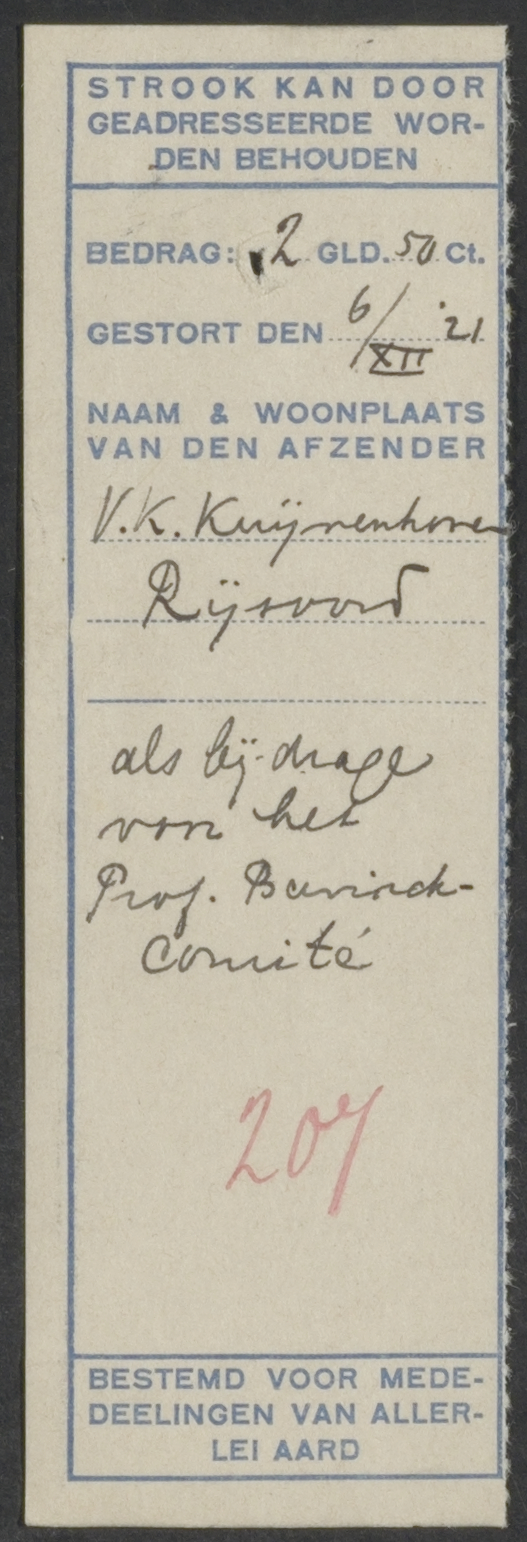 STROOK KAN DOOR
GEADRESSEERDE WOR-
DEN BEHOUDEN
BEDRAG: 2 GLD. 50 Ct.
GESTORT DEN 6/XII '21
NAAM & WOONPLAATS
VAN DEN AFZENDER
V.K. Kuijvenhoven
Rijsoord
als bij-drage
voor het
Prof. Bavinck-
Comité
207
BESTEMD VOOR MEDE-
DEELINGEN VAN ALLER-
LEI AARD